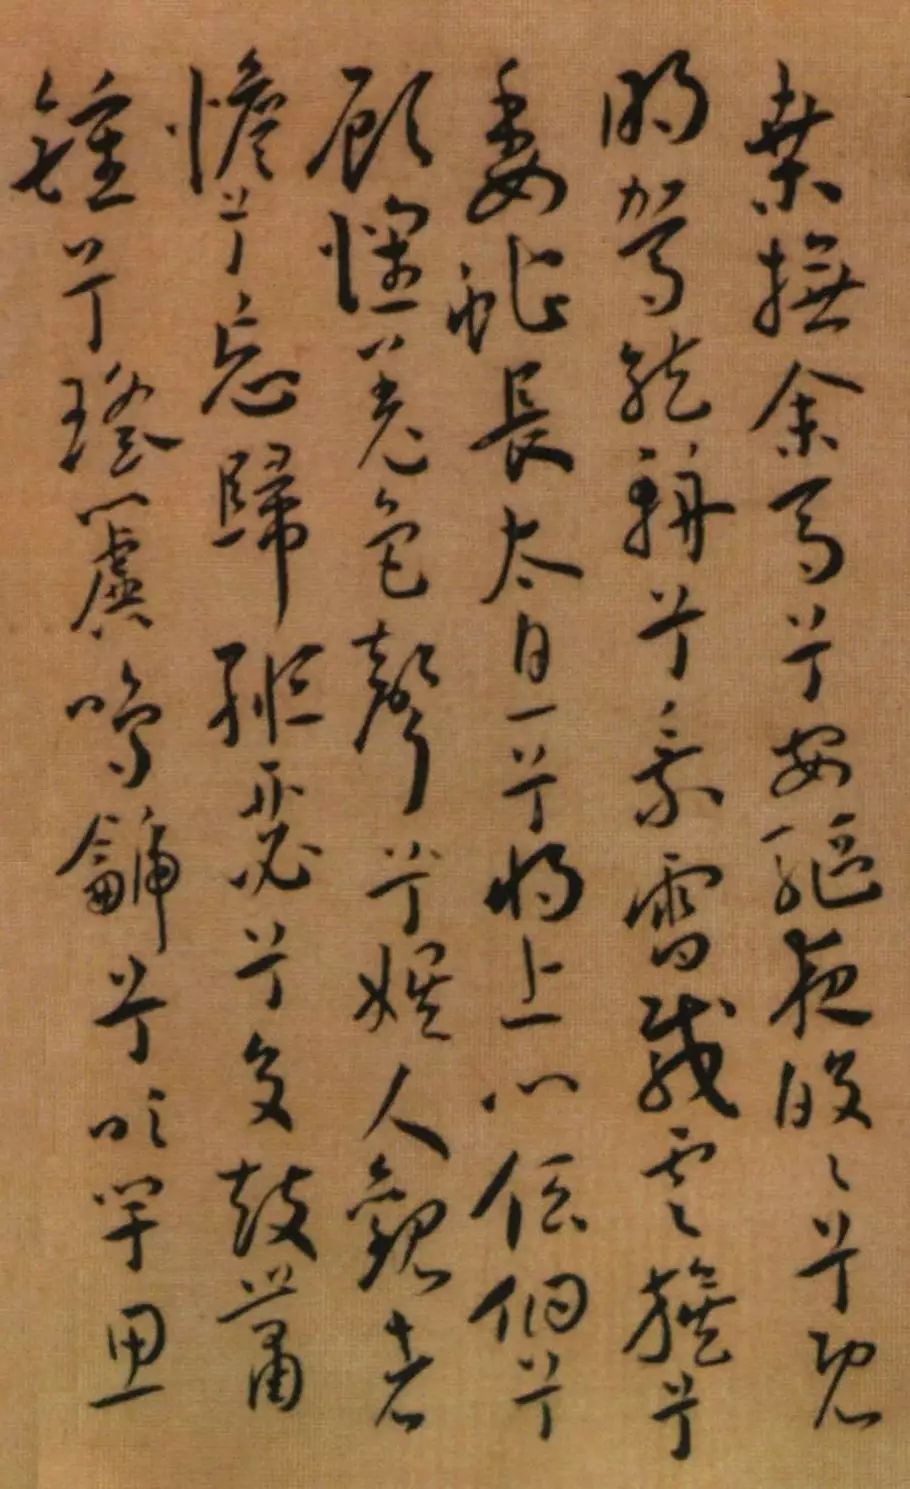 桑撫余馬兮安驅夜皎〻兮既
明駕龍輈兮乘雷載雲旗兮
委蛇長太息兮將上心低佪兮
顧懷羌色聲兮娛人觀者
憺兮忘歸絙瑟兮交鼓簫
鍾兮瑤簴鳴䶵兮吹竽思